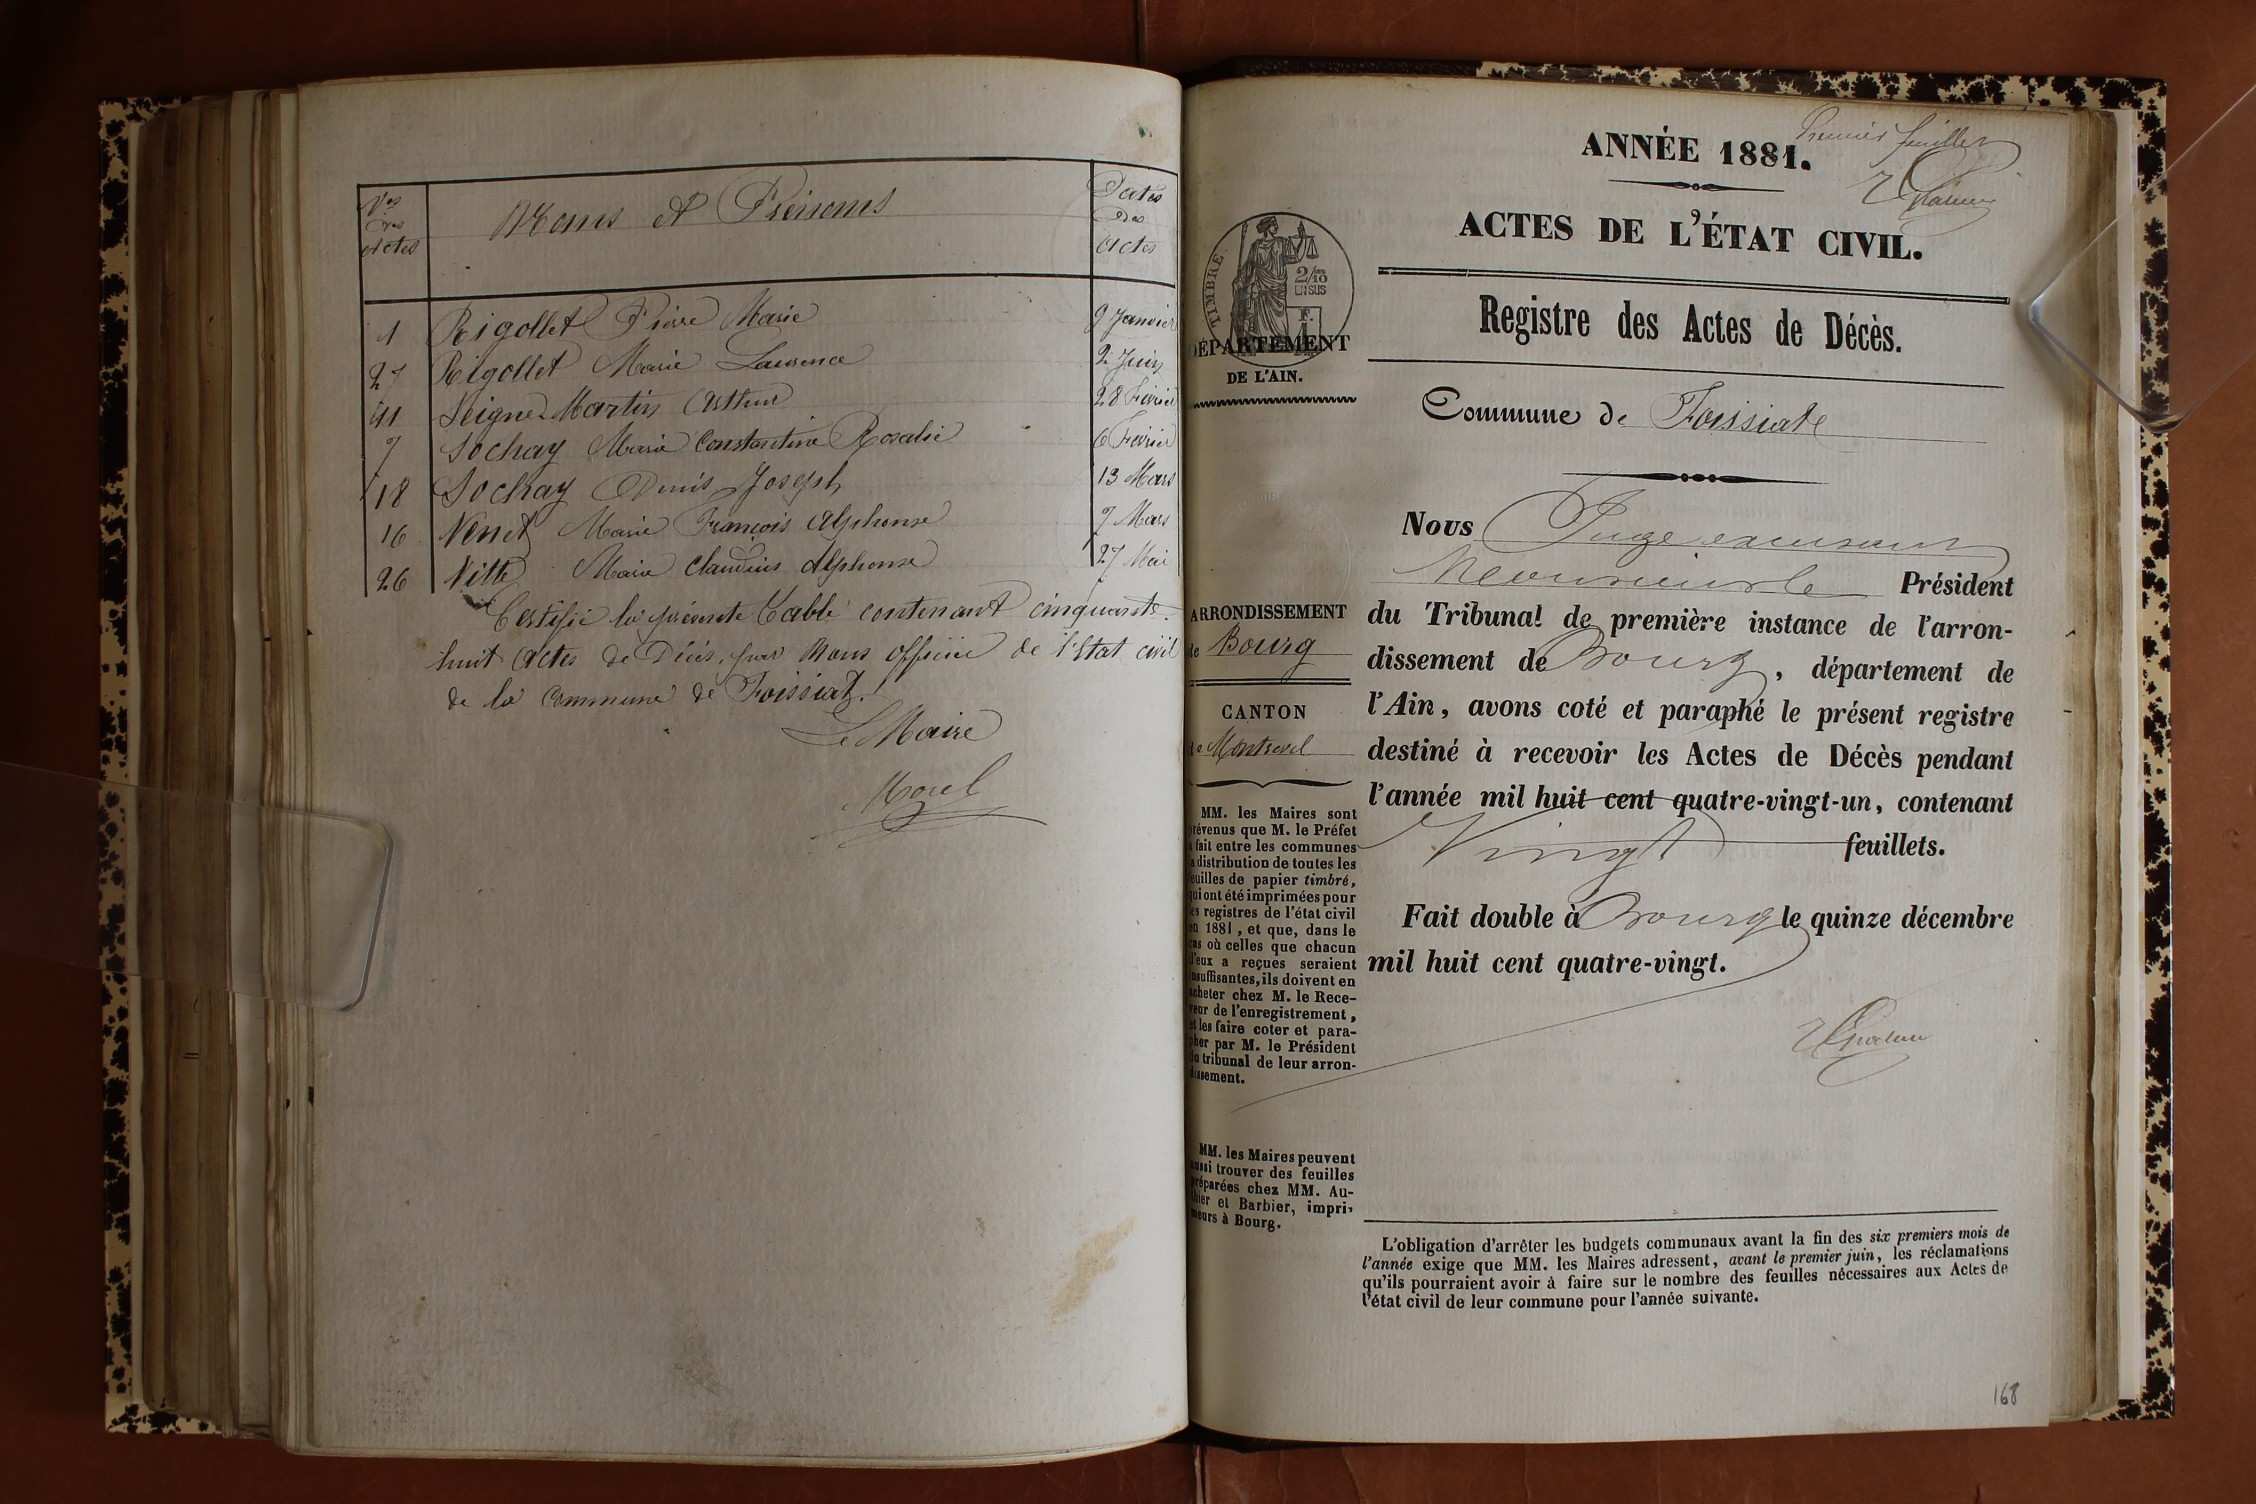 Nos des Actes
Noms et Prénoms
Dates des Actes
1 Rigollet Pierre Marie 9 Janvier
27 Rigollet Marie Laurence 2 Juin
11 Seigne Martin Arthur 28 Février
7 Sochay Marie Constantine Rosalie 6 Février
18 Sochay Denis Joseph 13 Mars
16 Venet Marie François Alphonse 9 Mars
26 Vitte Marie Claudius Alphonse 27 Mai
Certifié la présente Table contenant cinquante
huit actes de Décès, par Nous officier de l'Etat civil
de la Commune de Foissiat.
Le Maire
Morel
Premier feuillet
ANNÉE 1881.
ACTES DE L'ÉTAT CIVIL.
TIMBRE
2/10
EN SUS
DÉPARTEMENT
DE L'AIN.
Registre des Actes de Décès.
Commune de Foissiat
ARRONDISSEMENT
de Bourg
CANTON
de Montrevel
MM. les Maires sont
prévenus que M. le Préfet
a fait entre les communes
la distribution de toutes les
feuilles de papier timbré,
qui ont été imprimées pour
les registres de l'état civil
en 1881, et que, dans le
cas où celles que chacun
d'eux a reçues seraient
insuffisantes, ils doivent en
acheter chez M. le Rece-
veur de l'enregistrement,
et les faire coter et para-
pher par M. le Président
du tribunal de leur arron-
dissement.
MM. les Maires peuvent
aussi trouver des feuilles
préparées chez MM. Au-
thier et Barbier, impri-
meurs à Bourg.
Nous Juge
Monsieur le Président
du Tribunal de première instance de l'arron-
dissement de Bourg, département de
l'Ain, avons coté et paraphé le présent registre
destiné à recevoir les Actes de Décès pendant
l'année mil huit cent quatre-vingt-un, contenant
Vingt feuillets.
Fait double à Bourg le quinze décembre
mil huit cent quatre-vingt.
L'obligation d'arrêter les budgets communaux avant la fin des six premiers mois de
l'année exige que MM. les Maires adressent, avant le premier juin, les réclamations
qu'ils pourraient avoir à faire sur le nombre des feuilles nécessaires aux Actes de
l'état civil de leur commune pour l'année suivante.
168